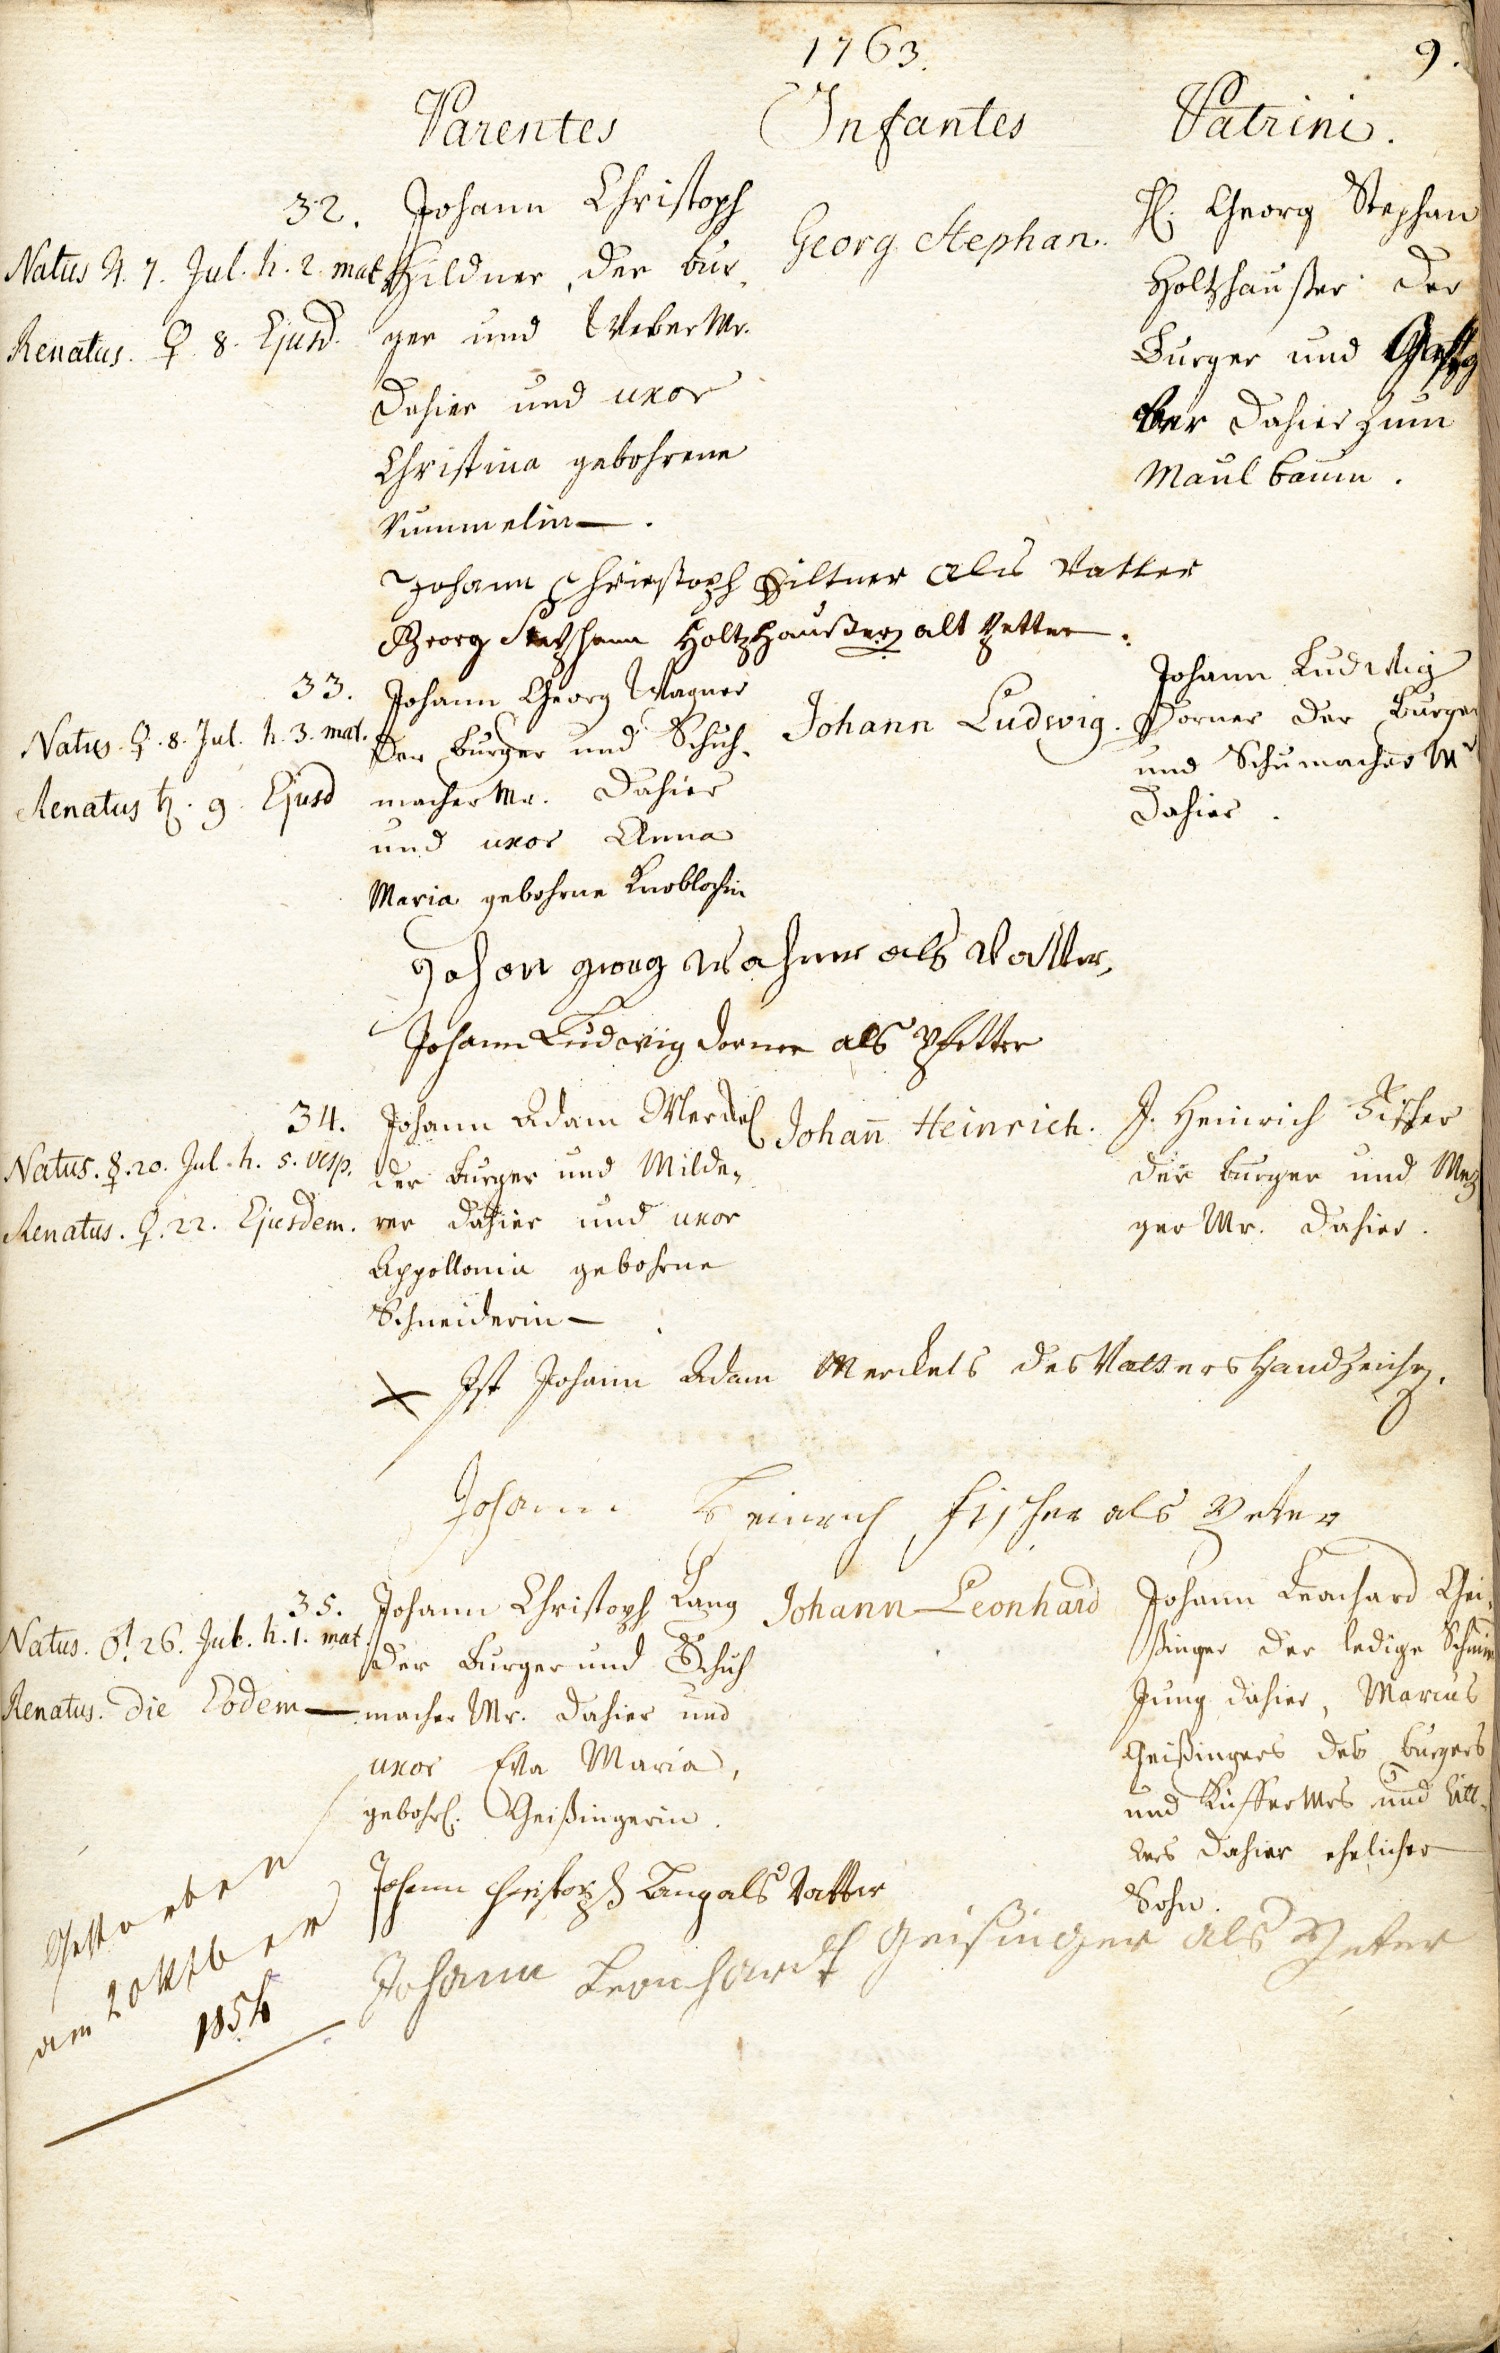 1763.
9.
Parentes
Infantes
Patrini.
32.
Natus ♃. 7. Jul. h. 2. mat.
Renatus. ♀. 8. Ejusd.
Johann Christoph
Hildner, der bur-
ger und Weber Mr.
dahier und uxor
Christina gebohrene
Rummelin.
Georg Stephan.
H. Georg Stephan
Holtzhaußer der
Burger und Gastg
ber dahier zum
Maulbaum.
Johann Christoph Hiltner als Vatter
Georg Stephann Holtzhaußer alt Petter.
33.
Natus. ♀. 8. Jul. h. 3. mat.
Renatus ♄. 9. Ejusd
Johann Georg Wagner
der Burger und Schuh-
macher Mr. dahier
und uxor Anna
Maria gebohrne Knoblochin
Johann Ludwig.
Johann Ludwig
Dorner der Burger
und Schumacher Mr
dahier.
Johan georg Wahner als Vatter,
Johann Ludwig Dorner als Pfetter
34.
Natus. ☿. 20. Jul. h. 5. vesp.
Renatus. ♀. 22. Ejusdem.
Johann Adam Merckel
der Burger und
dahier und uxor
Appollonia gebohrne
Schneiderin
Johann̄ Heinrich.
J. Heinrich Fischer
der burger und Mez
ger Mr. dahier.
X Ist Johann Adam Merckels des Vatters Handzeichen.
Johann Heinrich Fischer als Petter
35.
Natus. ♂. 26. Jul. h. 1. mat.
Renatus. die Eodem
Johann Christoph Lang
der Burger und Schuh
macher Mr. dahier und
uxor Eva Maria,
gebohrl. Geißingerin.
Johann Leonhard
Johann Leonhard Gei-
ßinger der ledige
Jung dahier, Marcus
Geißingers des burgers
und Küffer Mrs und
dahier ehelicher
Sohn.
Johann Christoph Lang als Vatter
Johann Leonhardt Geißinger als Peter
Gestorben
am 2 Oktber
185